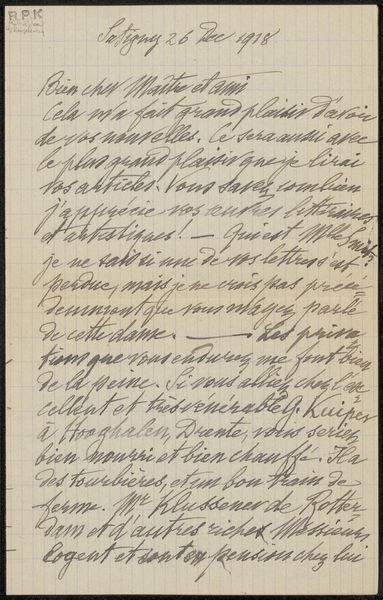 R.P.K
Satigny 26 Dec 1918
Bien cher Maître et ami
Cela m'a fait grand plaisir d'avoir
de vos nouvelles. Ce sera aussi avec
le plus grand plaisir que je lirai
vos articles. Vous savez combien
j'apprécie vos œuvres littéraires
et artistiques! — Qui est Mlle
je ne sais si une de vos lettres s'est
perdue, mais je ne crois pas précé-
demment que vous m'ayez parlé
de cette dame. — Les priva
tions que vous endurez me font bien
de la peine. Si vous alliez chez l'ex
cellent et très vénérable G. Kuiper
à Hooghalen, Drente, vous seriez
bien nourri et bien chauffé. Il a
des tourbières, et un bon train de
ferme. Mr Klussener de Rotter
dam et d'autres riches Messieurs
logent et sont en pension chez lui